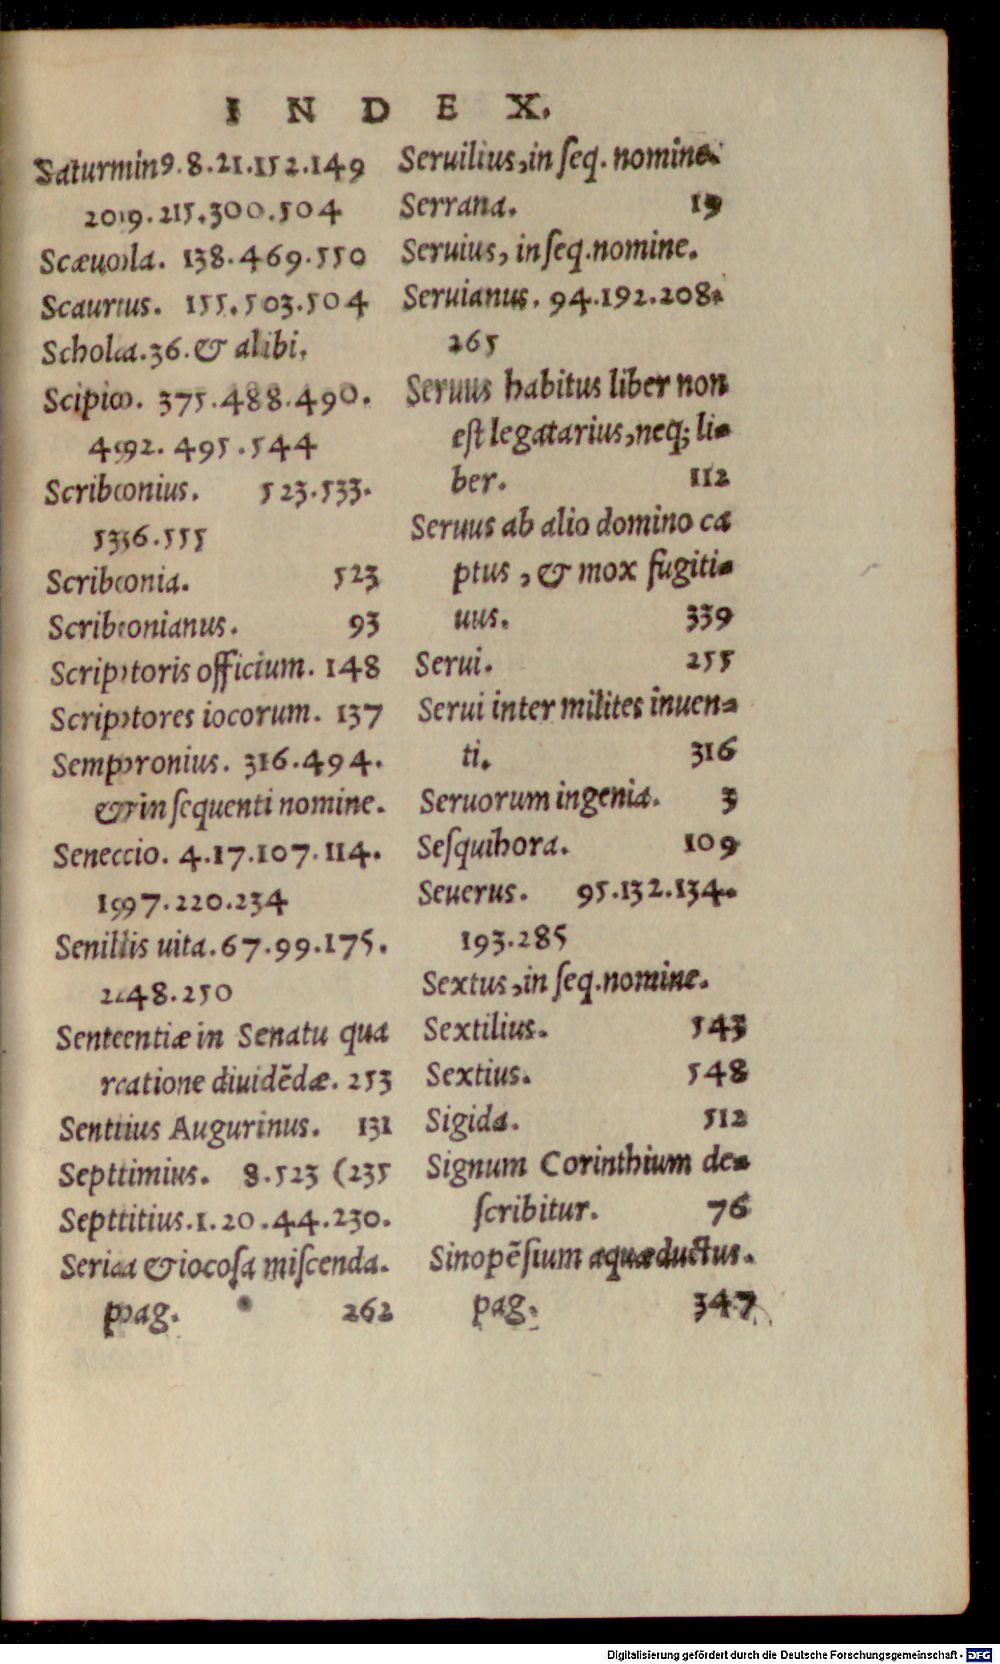 INDEX.
Saturminꝰ.8.21.152.149
209.215.300.504
Scæuola. 138.469.550
Scaurus. 155.503.504
Schola.36.& alibi.
Scipio. 375.488.490.
492. 495.544
Scribonius. 523.533.
536.555
Scribonia. 523
Scribonianus. 93
Scriptoris officium. 148
Scriptores iocorum. 137
Sempronius. 316.494.
& in ſequenti nomine.
Seneccio. 4.17.107.114.
197.220.234
Senilis uita.67.99.175.
248.250
Sententiæ in Senatu qua
ratione diuidēdæ. 253
Sentius Augurinus. 131
Septimius. 8.523 (235
Septitius.1.20.44.230.
Seria & iocoſa miſcenda.
pag. 262
Seruilius,in ſeq. nomine.
Serrana. 19
Seruius, in ſeq.nomine.
Seruianus. 94.192.208.
265
Seruus habitus liber non
eſt legatarius,neq; li-
ber. 112
Seruus ab alio domino ca
ptus , & mox fugiti-
uus. 339
Serui. 255
Serui inter milites inuen-
ti. 316
Seruorum ingenia. 3
Seſquihora. 109
Seuerus. 95.132.134.
193.285
Sextus,in ſeq.nomine.
Sextilius. 543
Sextius. 548
Sigida. 512
Signum Corinthium de-
ſcribitur. 76
Sinopēſium aquæductus.
pag. 347
Digitalisierung gefördert durch die Deutsche Forschungsgemeinschaft - DFG